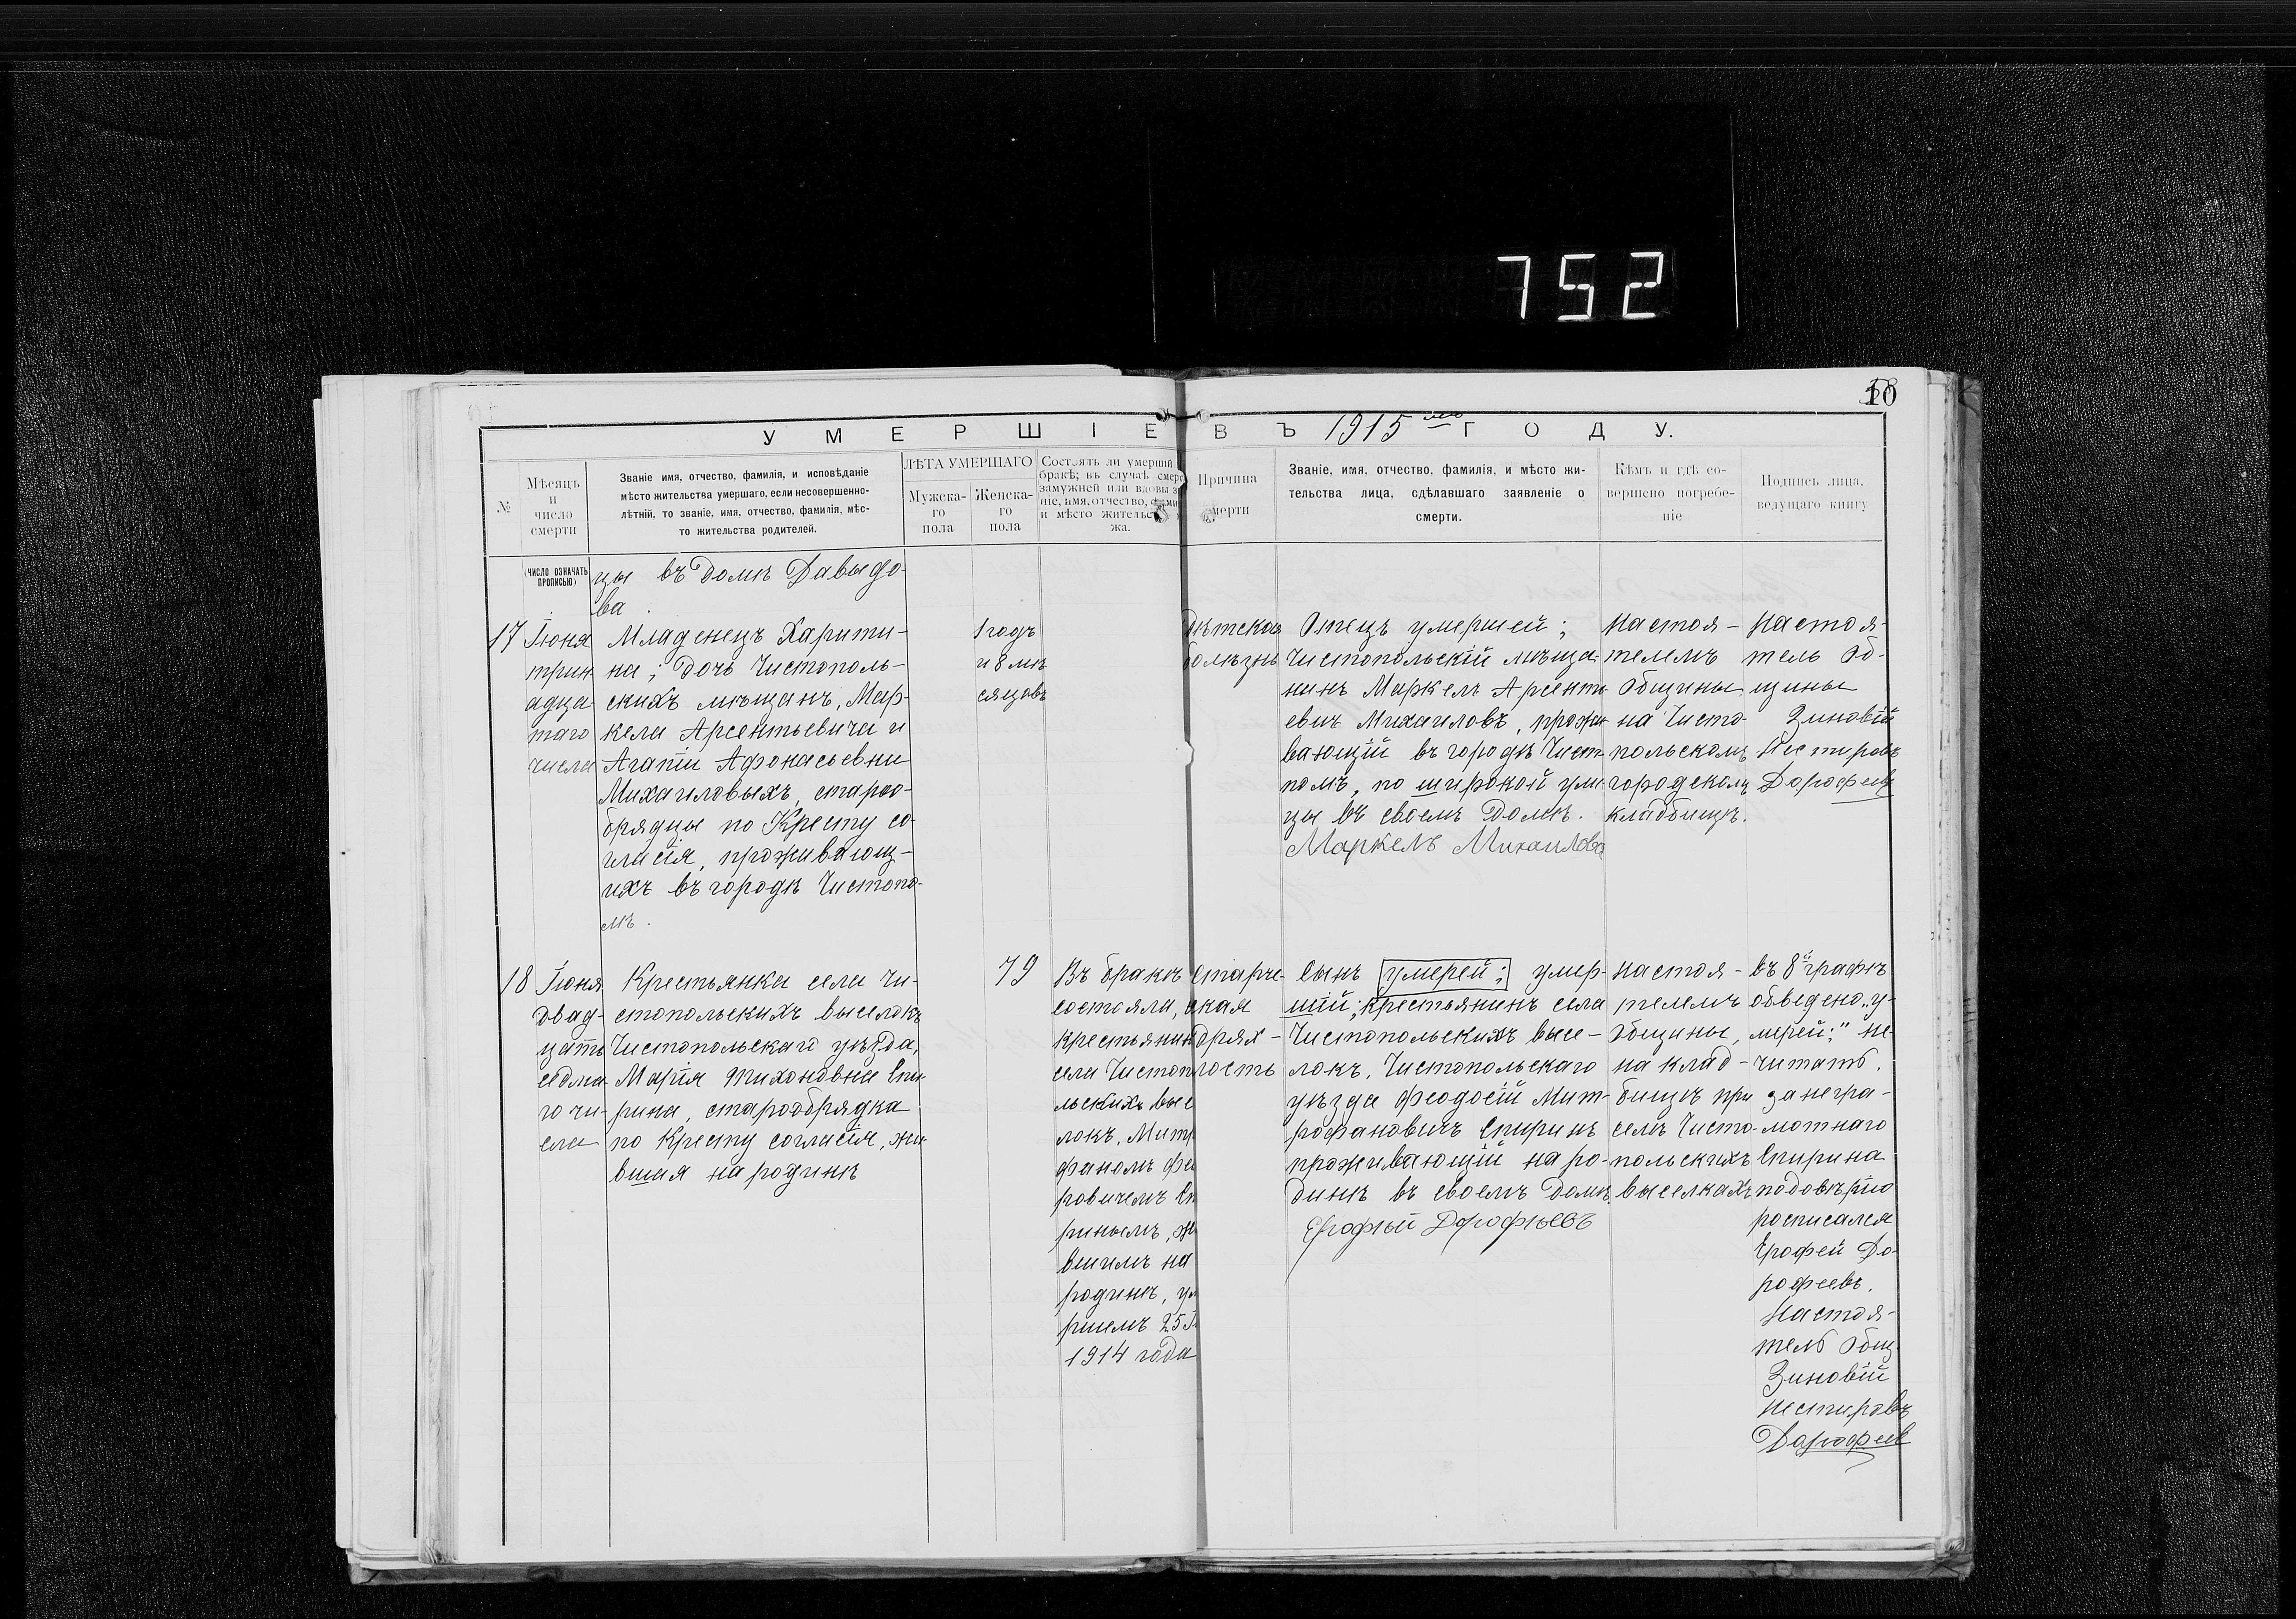 752
10
УМЕРШІЕ ВЪ 1915 мъ ГОДУ.
№
Мѣсяцъ
и
число
смерти
(ЧИСЛО ОЗНАЧАТЬ
ПРОПИСЬЮ)
Званіе имя, отчество, фамилія, и исповѣданіе
мѣсто жительства умершаго, если несовершенно-
лѣтній, то званіе, имя, отчество, фамилія, мѣс-
то жительства родителей.
ЛѢТА УМЕРШАГО
Мужска-
го
пола
Женска-
го
пола
Состоялъ ли умершій
бракѣ; въ случаѣ смер
замужней или вдовы з
ніе, имя, отчество, фами
и мѣсто жительс
жа.
Причина
смерти
Званіе, имя, отчество, фамилія, и мѣсто жи-
тельства лица, сдѣлавшаго заявленіе о
смерти.
Кѣмъ и гдѣ со-
вершено погребе-
ніе
Подпись лица,
ведущаго книгу
цы въ домѣ Давыдо-
ва.
17
Іюня
трин-
адца-
таго
числа
Младенецъ Харити-
на; дочь Чистополь-
скихъ мѣщанъ, Мар-
кела Арсентьевича и
Агапіи Афонасьевны
Михаиловыхъ, старо-
брядцы по Кресту со-
гласія, проживающ-
ихъ въ городѣ Чистопо-
лѣ.
1 годъ
и 8 мѣ
сяцовъ
Дѣтская
болѣзнь
Отецъ умершей;
Чистопольскій мѣща-
нинъ Маркелъ Арсенть
евич Михаиловъ, прожи
вающій въ городѣ Чист-
полѣ, по широкой ули
цы въ своемъ домѣ.
Маркелъ Михаилова
Настоя-
телемъ
Общины
на Чисто-
польскомъ
городскомъ
кладбищѣ.
Настоя-
тель Об-
щины
Зиновій
Нестировъ
Дорофеев
18
Іюня
двад-
цать
седма-
го чи-
сла
Крестьянка села Чи-
стопольскихъ выселокъ
Чистопольскаго уѣзда,
Марія Тихоновна Спи-
рина, старообрядка
по Кресту согласія, жи-
вшая на родинѣ
79
Въ бракѣ
состояли,
крестьянин
села Чистоп
льскихъ выс
локъ, Митр
фаномъ Фе
ровичемъ Сп
ринымъ, жи
вшимъ на
родинѣ, ум
ршемъ 25 I
1914 года
Старче-
ская
дрях-
лость
Сынъ умерей; умер-
шій; крестьянинъ села
Чистопольскихъ высе-
локъ, Чистопольскаго
уѣзда Феодосій Мит-
рофановичъ Спиринъ
проживающій на ро-
динѣ въ своемъ домѣ
Ерофѣй Дрофѣевъ
Настоя-
телемъ
Общины,
на клад-
бищѣ при
селѣ Чисто-
польскихъ
выселкахъ
въ 8й графѣ
обведено „у-
мерей;" не-
читать.
За негра-
мотнаго
Спирина
подовѣрію
росписался
Ерофей До-
рофеевъ.
Настоя-
тель Общ
Зиновій
Нестировъ
Дорофеев